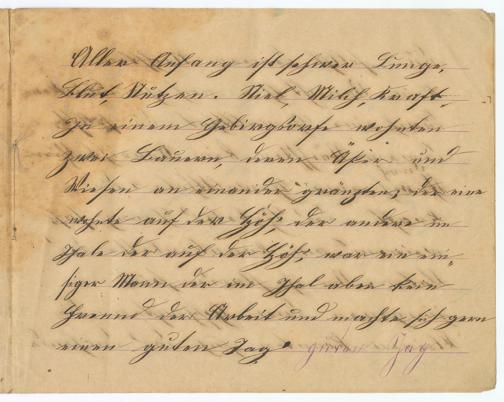 Aller Anfang ist schwer Lunge,
Blut, Nutzen. Viel, Milch, Kraft,
In einem Gebirgsdorfe wohnten
zwei Bauern, deren Äcker und
Wiesen an einander gränzten, der eine
wohnte auf der Höh, der andere im
Thale der auf der Höh, war ein ein„
siger Mann der im Thal aber kein
Freund der Arbeit und machte sich gern
einen guten Tag. guten Tag